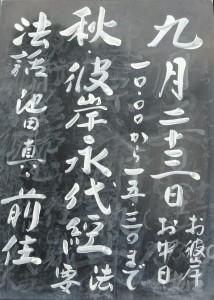 九月二十三日
お彼岸
お中日
一〇.〇〇から一五.三〇まで
秋.彼岸永代経法要
法話 池田真 前住